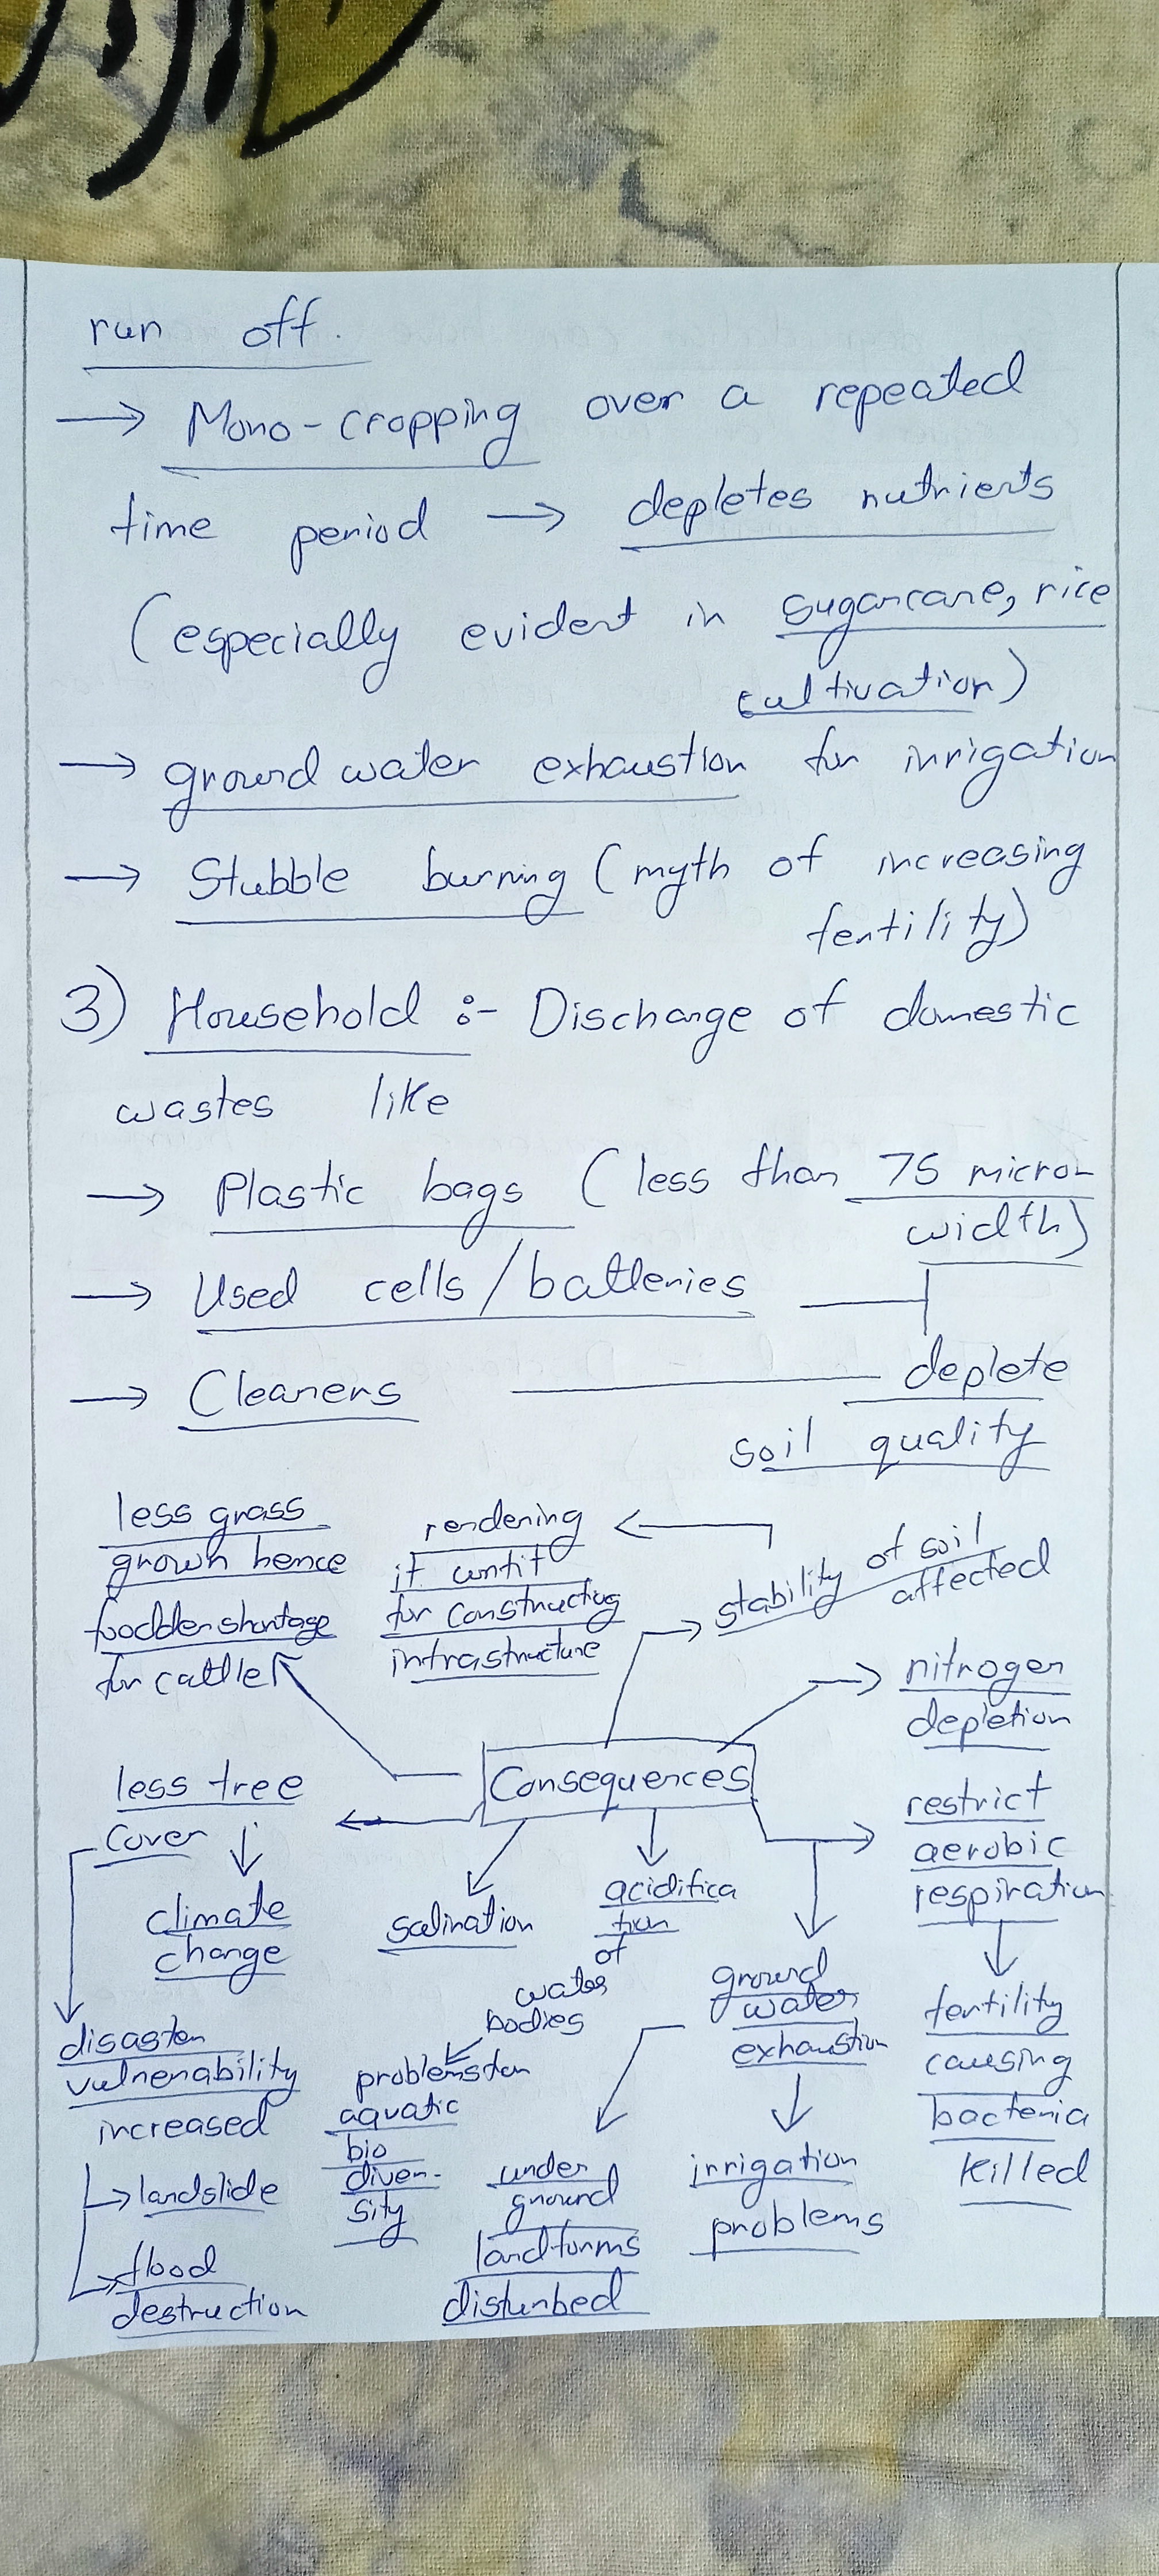 run off.
→ Mono-cropping over a repeated
time period → depletes nutrients
(especially evident in sugarcane, rice
cultivation)
→ ground water exhaustion for inrigation
→ Stubble burning (myth of increasing
fertility)
3) Household :- Discharge of domestic
wastes like
→ Plastic bags (less than 75 micron
width)
→ Used cells/batteries
→ Cleaners deplete
soil quality
less grass
grown hence
fodder shortage
for cattle
rendering
it unfit
for constructing
infrastructure
stability of soil
affected
nitrogen
depletion
Consequences
less tree
cover
climate
change
salination
acidifica
tion
of
water
bodies
restrict
aerobic
respiration
ground
water
exhaustion
fertility
causing
bacteria
killed
disaster
vulnerability
increased
→ landslide
→ flood
destruction
problems for
aquatic
bio
diver-
sity
under
ground
landforms
disturbed
irrigation
problems